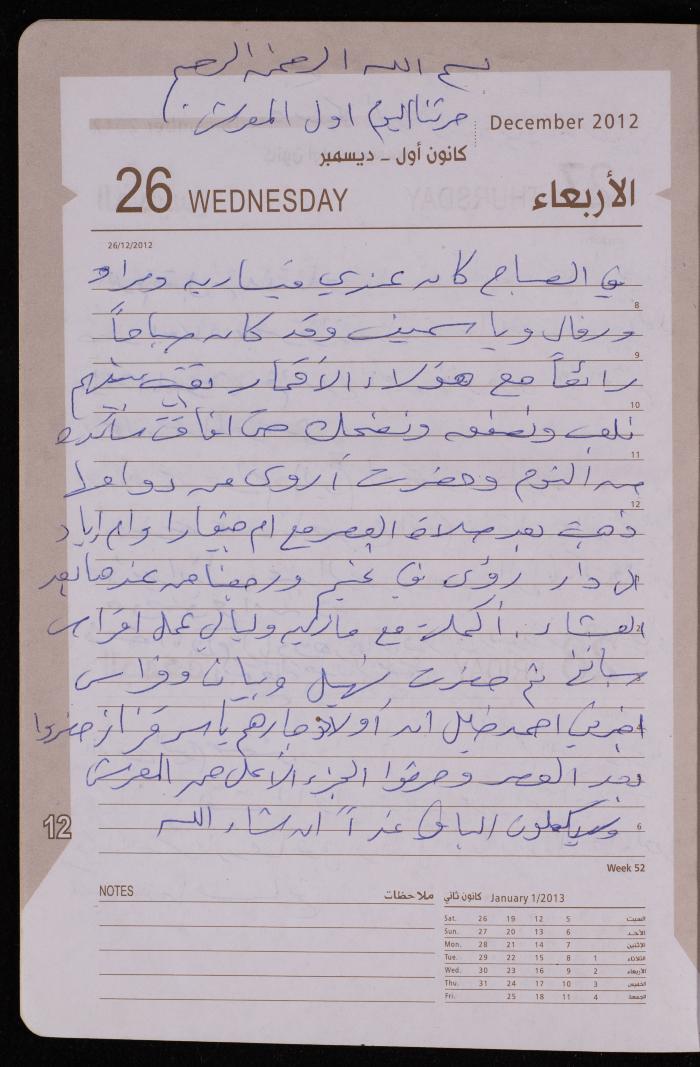 بسم الله الرحمن الرحيم
حرثنا اليوم اول المعرش
December 2012
كانون أول - ديسمبر
26 WEDNESDAY الأربعاء
26/12/2012
في الصباح كان عندي قيساريه ومراد
8
ورفال وياسمين وقد كان صباحاً
9
رائعاً مع هؤلاء الأقمار بقيت بينهم
10
نلعب ونصفق ونضحك حتى افاقت
11
من النوم وحضرت أروى من دوامها
12
ذهبت بعد صلاة العصر مع ام وام اياد
الى دار رؤى في ورجعنا من عندها بعد
العشاء. أكملت مع ماريه وليالي عمل اقراص
سبانخ ثم حضرت نهيل وبيان وفراس
اخبرني احمد خليل ان أولاد جارهم ياسر حضروا
بعد العصر وحرثوا الجزء الأعلى من المعرش
وسيكملون الباقي غداً ان شاء الله
6
12
Week 52
NOTES ملاحظات
كانون ثاني January 1/2013
Sat. 26 19 12 5 السبت
Sun. 27 20 13 6 الأحد
Mon. 28 21 14 7 الاثنين
Tue. 29 22 15 8 1 الثلاثاء
Wed. 30 23 16 9 2 الأربعاء
Thu. 31 24 17 10 3 الخميس
Fri. 25 18 11 4 الجمعة